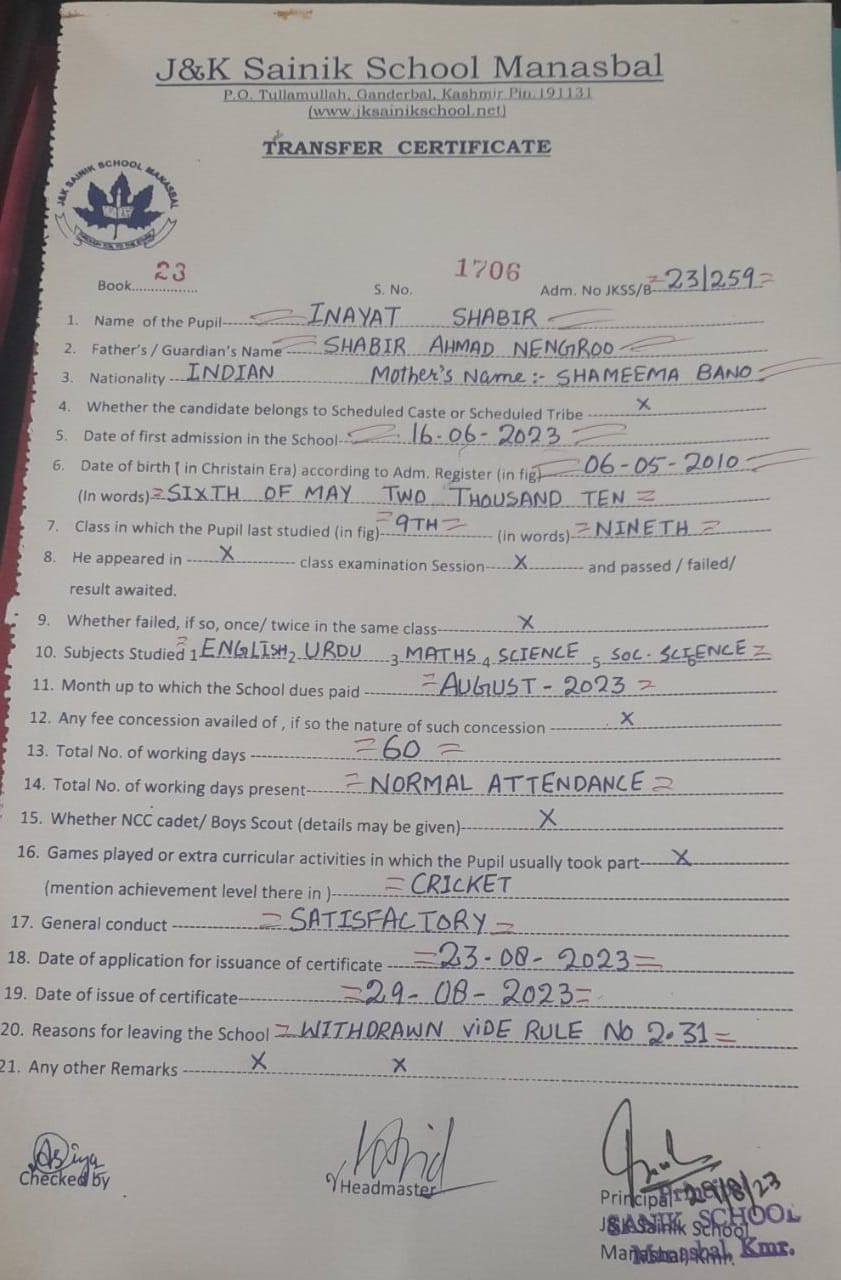 J&K Sainik School Manasbal
P.O. Tullamullah, Ganderbal, Kashmir Pin.191131
(www.jksainikschool.net)
TRANSFER CERTIFICATE
J&K SAINIK SCHOOL MANASBAL
Book 23 S. No. 1706 Adm. No JKSS/B 23/259
1. Name of the Pupil INAYAT SHABIR
2. Father's / Guardian's Name SHABIR AHMAD NENGROO
3. Nationality INDIAN Mother's Name :- SHAMEEMA BANO
4. Whether the candidate belongs to Scheduled Caste or Scheduled Tribe X
5. Date of first admission in the School 16-06-2023
6. Date of birth ( in Christain Era) according to Adm. Register (in fig) 06-05-2010
(In words) SIXTH OF MAY TWO THOUSAND TEN
7. Class in which the Pupil last studied (in fig) 9TH (in words) NINETH
8. He appeared in X class examination Session X and passed / failed/
result awaited.
9. Whether failed, if so, once/ twice in the same class X
10. Subjects Studied 1 ENGLISH 2 URDU 3 MATHS 4 SCIENCE 5 SOC. SCIENCE 6
11. Month up to which the School dues paid AUGUST - 2023
12. Any fee concession availed of , if so the nature of such concession X
13. Total No. of working days 60
14. Total No. of working days present NORMAL ATTENDANCE
15. Whether NCC cadet/ Boys Scout (details may be given) X
16. Games played or extra curricular activities in which the Pupil usually took part X
(mention achievement level there in ) CRICKET
17. General conduct SATISFACTORY
18. Date of application for issuance of certificate 23-08-2023
19. Date of issue of certificate 29-08-2023
20. Reasons for leaving the School WITHDRAWN VIDE RULE No 2.31
21. Any other Remarks X X
Checked by
Headmaster
Principal 29/8/23
J&K Sainik School
SANIK SCHOOL
Manasbal, Kmr.
Manasbal, Kmr.